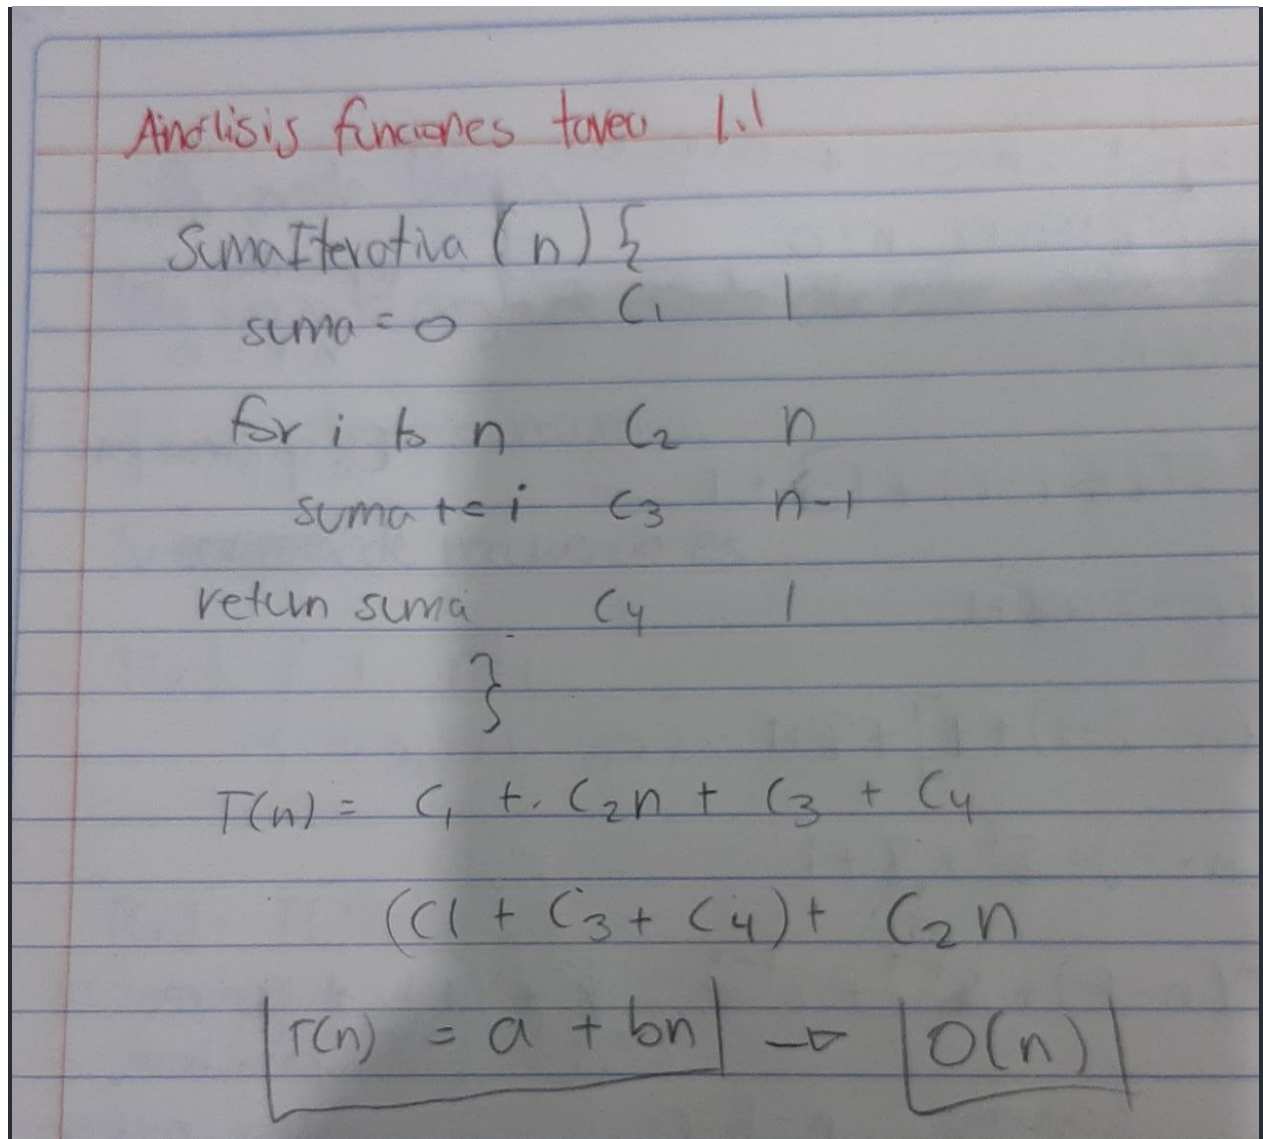 Análisis funciones tarea 1.1
SumaIterativa (n) {
suma = 0 C1 1
for i to n C2 n
suma += i C3 n-1
return suma C4 1
}
T(n) = C1 + C2n + C3 + C4
(C1 + C3 + C4) + C2n
T(n) = a + bn → O(n)